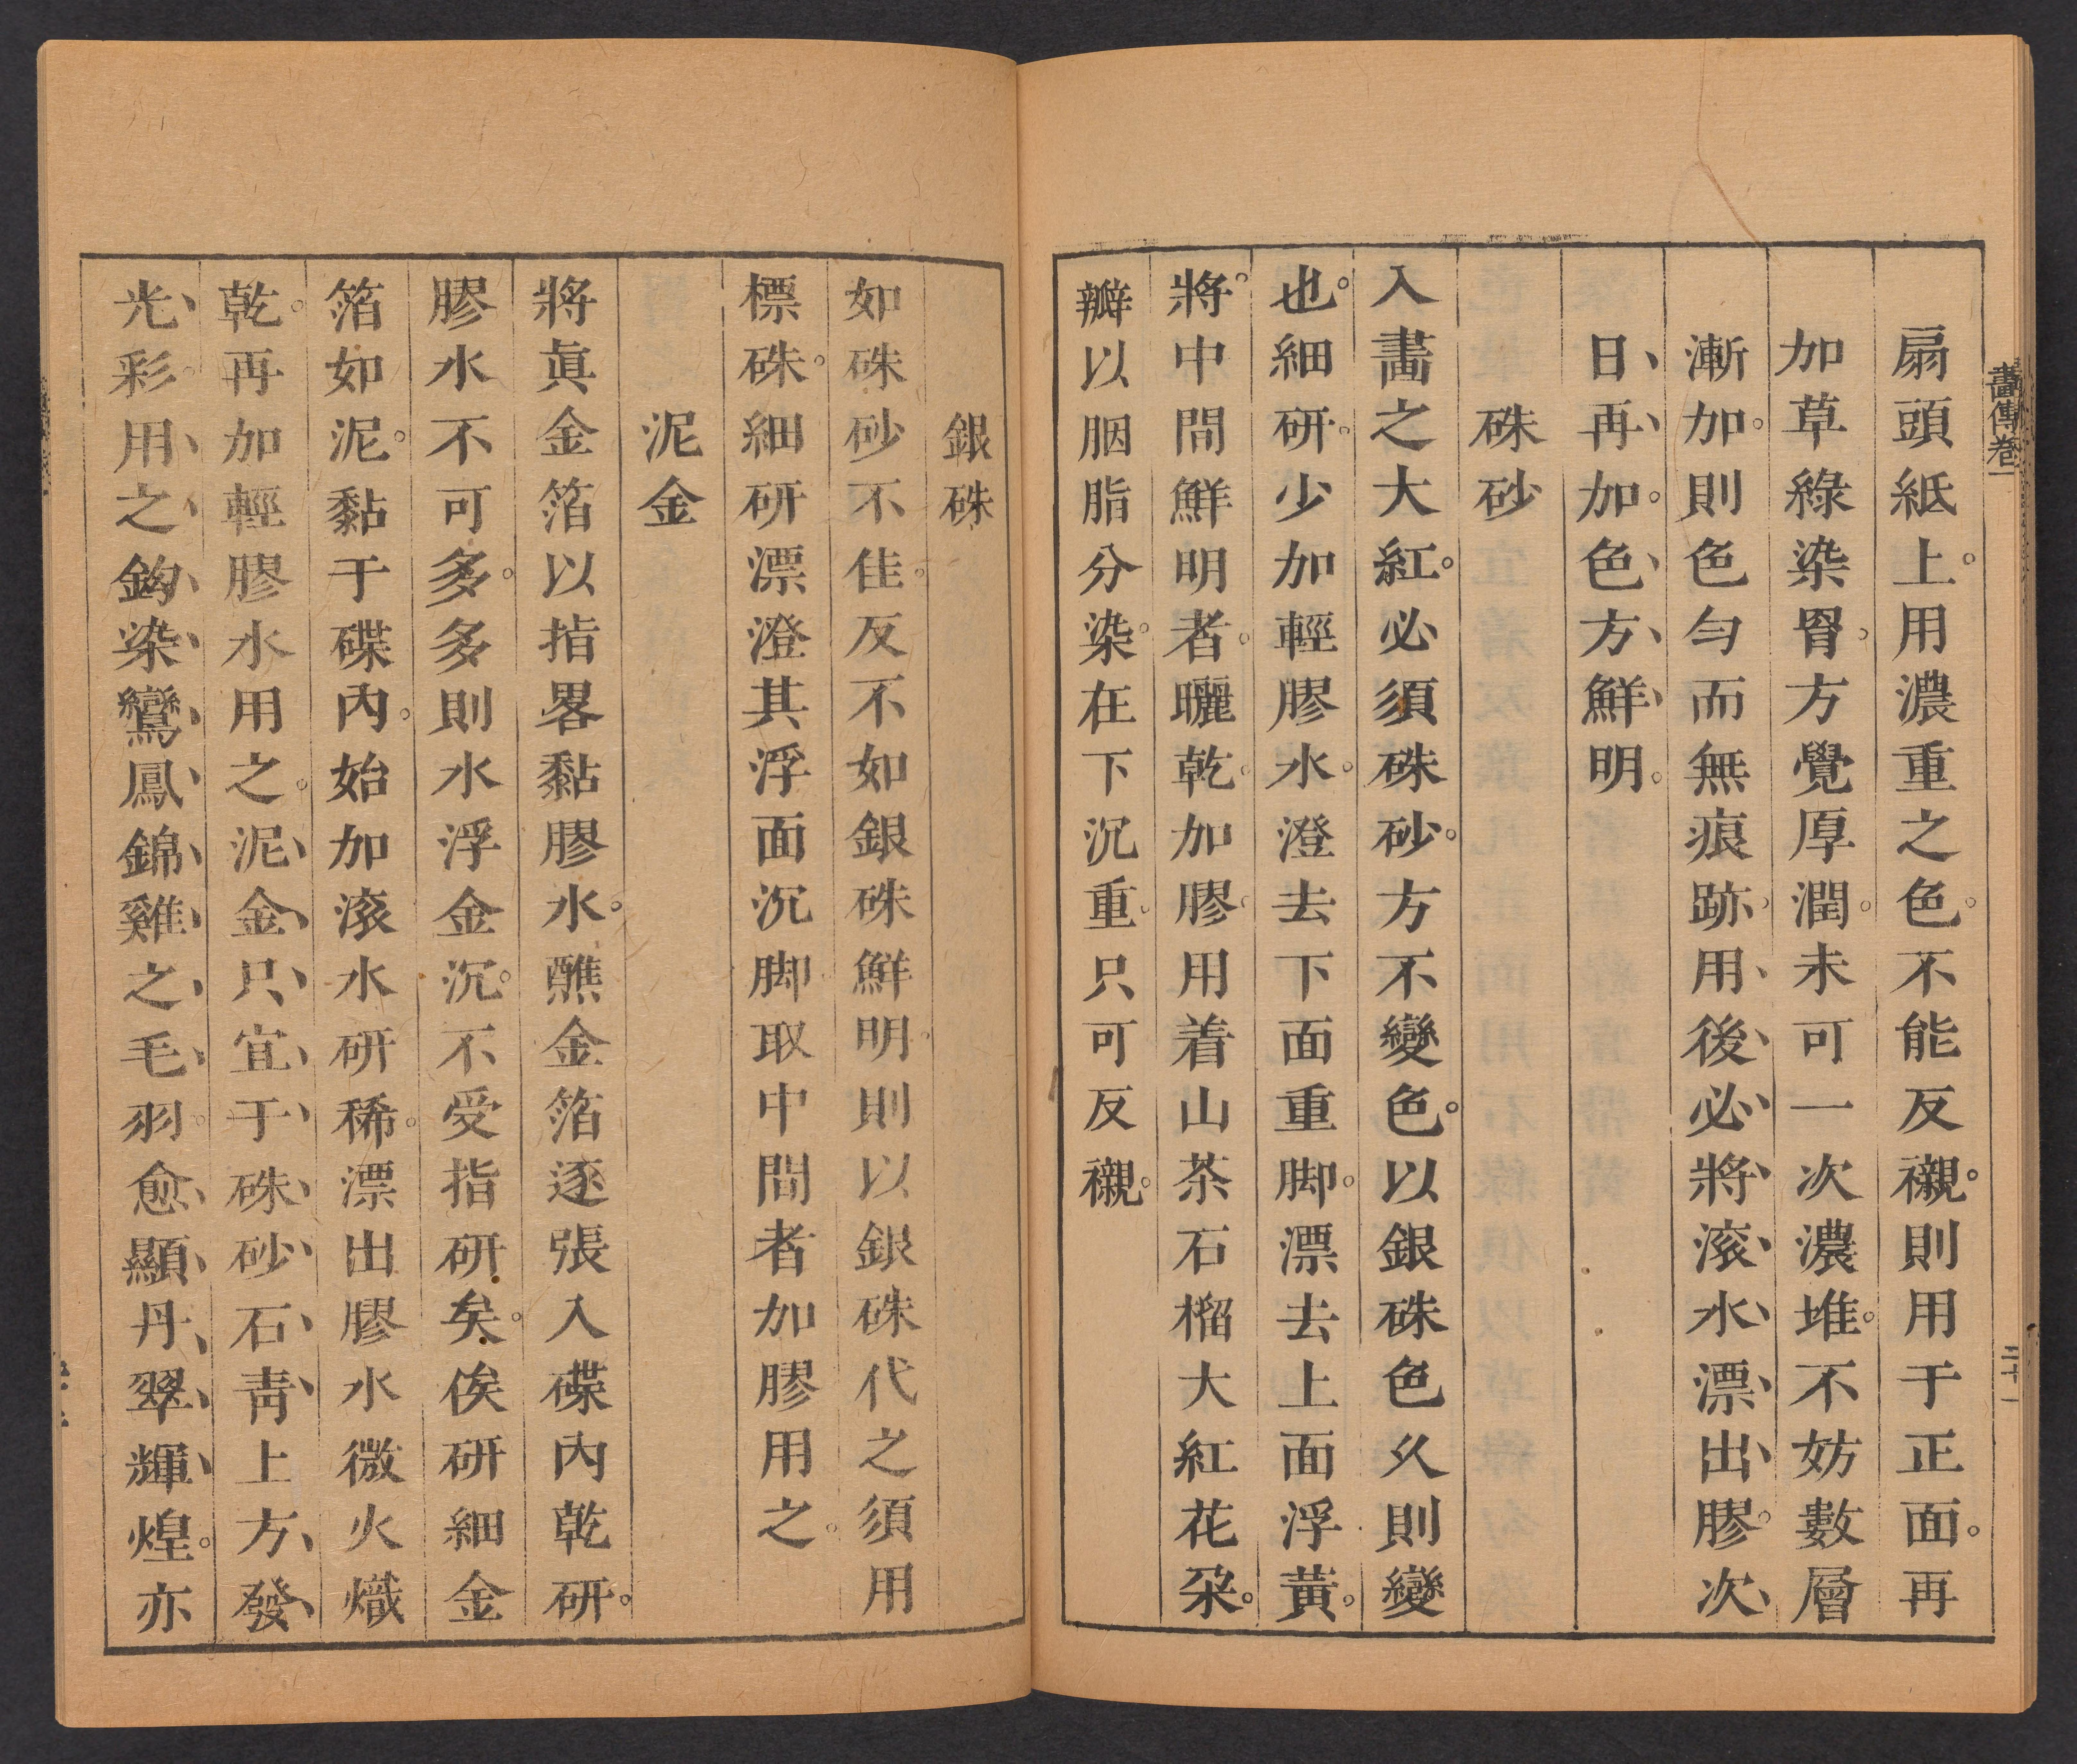 畫傳卷一
扇頭紙上。用濃重之色。不能反襯。則用于正面。再
加草綠染胥。方覺厚潤。未可一次濃堆。不妨數層
漸加。則色勻而無痕跡。用、後、必、將、滚、水、漂、出、膠。次、
日、再、加。色、方、鮮、明。
硃砂
入畫之大紅。必須硃砂。方不變色。以銀硃色久則變
也。細研。少加輕膠水。澄去下面重脚。漂去上面浮黃。
將。中間鮮明者。曬乾。加膠。用着山茶石榴大紅花朶。
瓣以胭脂分染。在下沉重。只可反襯。
二十一
銀硃
如硃砂不佳。反不如銀硃鮮明。則以銀硃代之須用
標硃。細研漂澄其浮面沉脚。取中間者加膠用之。
泥金
將眞金箔以指畧黏膠水。醮金箔逐張入碟內乾研。
膠水不可多。多則水浮金沉。不受指研矣。俟研細金
箔如泥。黏于碟內。始加滚水研稀。漂出膠水微火熾
乾。再加輕膠水用之。泥、金、只、宜、于、硃、砂、石、靑、上方、發、
光、彩。用、之、鈎、染、鸞、鳳、錦、雞、之、毛、羽。愈、顯、丹、翠、輝、煌。亦